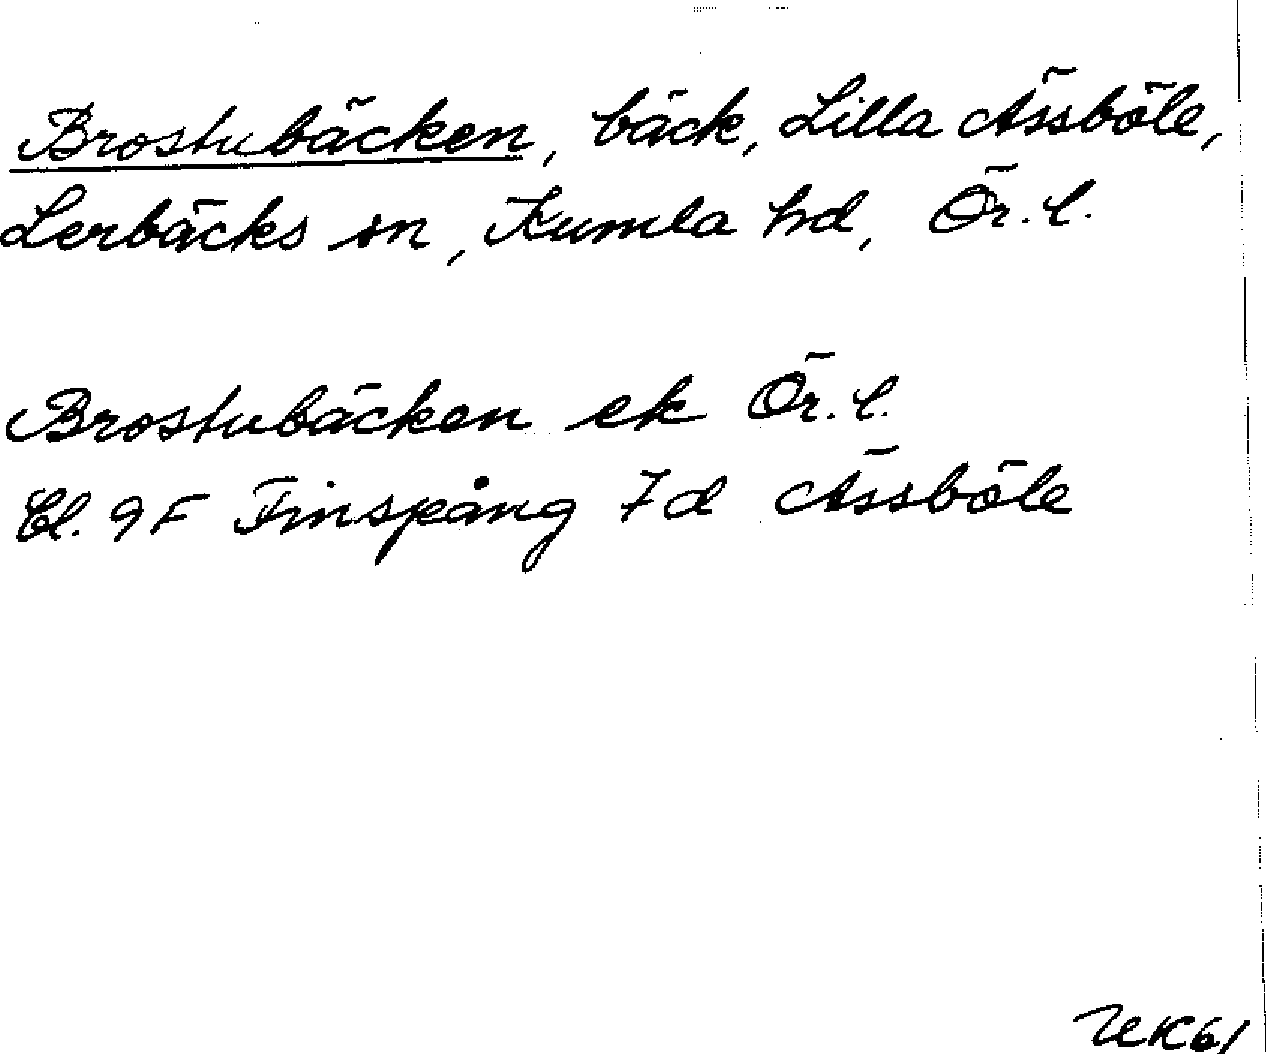 Brostubäcken, bäck, Lilla Ässböle,
Lerbäcks sn, Kumla hd, Ör. l.
Brostubäcken ek Ör. l.
Bl. 9F Finspång 7d Ässböle
UK61